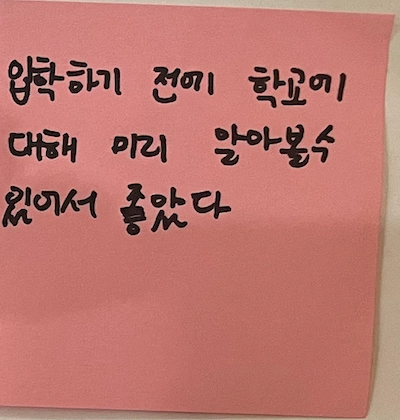 입학하기 전에 학교에
대해 미리 알아볼수
있어서 좋았다